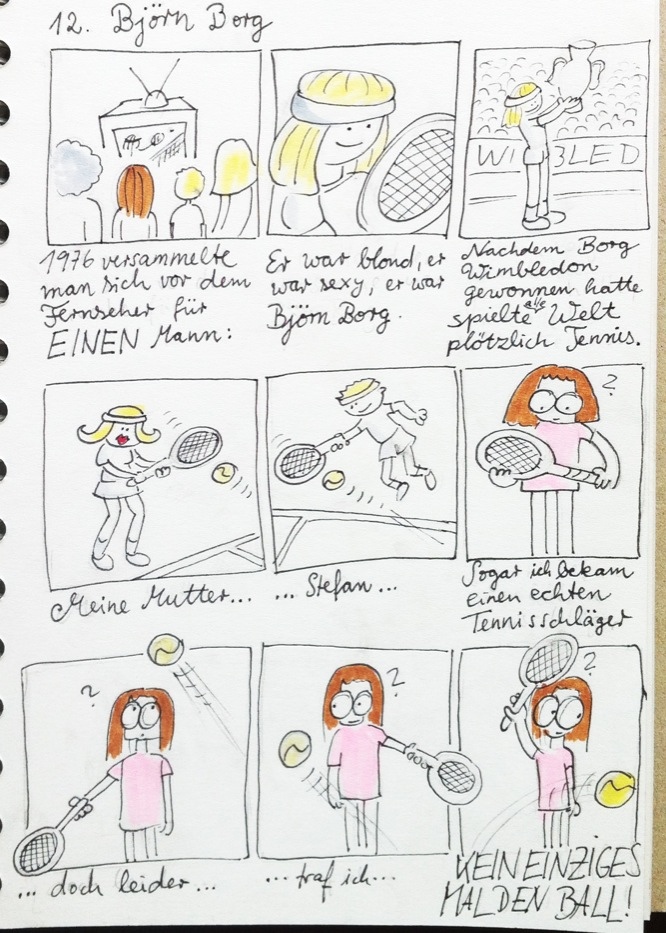 12. Björn Borg
1976 versammelte
man sich vor dem
Fernseher für
EINEN Mann:
Er war blond, er
war sexy, er war
Björn Borg.
WI BLED
Nachdem Borg
Wimbledon
gewonnen hatte
spielte alle Welt
plötzlich Tennis.
Meine Mutter...
... Stefan...
?
Sogar ich bekam
einen echten
Tennisschläger
?
... doch leider...
?
... traf ich...
?
KEIN EINZIGES
MAL DEN BALL!